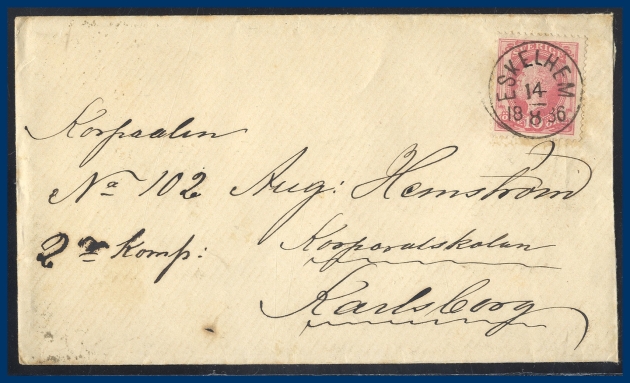 SVERIGE
ESKELHEM
14
8
18 86
Korpralen
No 102 Aug: Hemström
2a Komp: Korporalskolan
Karlsborg